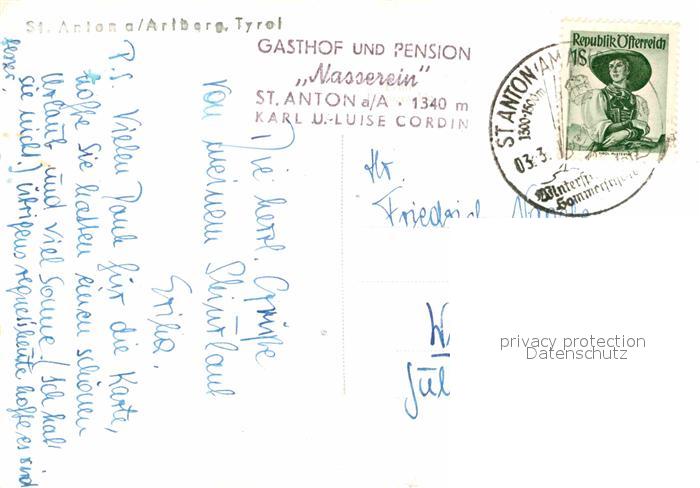 St. Anton a/Arlberg, Tyrol
GASTHOF UND PENSION
„Nasserein"
ST. ANTON a/A - 1340 m
KARL U. LUISE CORDIN
Republik Österreich
1S
ST. ANTON AM
1300-1500m
03.3.
Wintersp
Sommerfrische
Die herzl. Grüße
von meinem Skiurlaub
Erika.
P.S. Vielen Dank für die Karte,
hoffe Sie hatten einen schönen
Urlaub und viel Sonne! (Ich hab'
sie nicht.) Übrigens regnets heute hoffe es wird
Hr.
Friedrich
W
Jül
privacy protection
Datenschutz